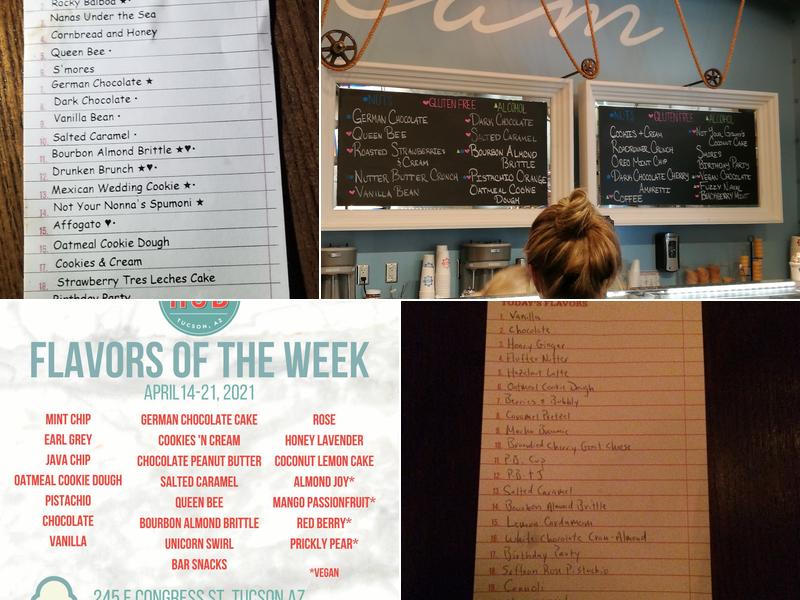 Rocky Balboa ★•
Nanas Under the Sea
Cornbread and Honey
5. Queen Bee •
6. S'mores
7. German Chocolate ★
8. Dark Chocolate •
9. Vanilla Bean •
10. Salted Caramel •
11. Bourbon Almond Brittle ★♥•
12. Drunken Brunch ★♥•
13. Mexican Wedding Cookie ★•
14. Not Your Nonna's Spumoni ★
15. Affogato ♥•
16. Oatmeal Cookie Dough
17. Cookies & Cream
18. Strawberry Tres Leches Cake
Birthday Party
NUTS ♥GLUTEN FREE ▲ALCOHOL
GERMAN CHOCOLATE
QUEEN BEE
ROASTED STRAWBERRIES
& CREAM
NUTTER BUTTER CRUNCH
VANILLA BEAN
DARK CHOCOLATE
SALTED CARAMEL
BOURBON ALMOND
BRITTLE
PISTACHIO ORANGE
OATMEAL COOKIE
DOUGH
NUTS GLUTEN FREE ALCOHOL
COOKIES + CREAM
ROADRUNNER CRUNCH
OREO MINT CHIP
DARK CHOCOLATE CHERRY
AMARETTI
COFFEE
NOT YOUR
COCONUT CAKE
SMORES
BIRTHDAY PARTY
VEGAN CHOCOLATE
FUZZY NAVAL
BLACKBERRY MINT
HUB
TUCSON, AZ
FLAVORS OF THE WEEK
APRIL 14-21, 2021
MINT CHIP
EARL GREY
JAVA CHIP
OATMEAL COOKIE DOUGH
PISTACHIO
CHOCOLATE
VANILLA
GERMAN CHOCOLATE CAKE
COOKIES 'N CREAM
CHOCOLATE PEANUT BUTTER
SALTED CARAMEL
QUEEN BEE
BOURBON ALMOND BRITTLE
UNICORN SWIRL
BAR SNACKS
ROSE
HONEY LAVENDER
COCONUT LEMON CAKE
ALMOND JOY*
MANGO PASSIONFRUIT*
RED BERRY*
PRICKLY PEAR*
*VEGAN
245 E CONGRESS ST, TUCSON AZ
TODAY'S FLAVORS
1. Vanilla
2. Chocolate
3. Honey Ginger
4. Fluffer Nutter
5. Hazelnut Latte
6. Oatmeal Cookie Dough
7. Berries & Bubbly
8. Caramel Pretzel
9. Mocha Brownie
10. Brandied Cherry Goat Cheese
11. P.B. Cup
12. P.B. + J
13. Salted Caramel
14. Bourbon Almond Brittle
15. Lemon Cardamom
16. White Chocolate Cran-Almond
17. Birthday Party
18. Saffron Rose Pistachio
19. Cannoli